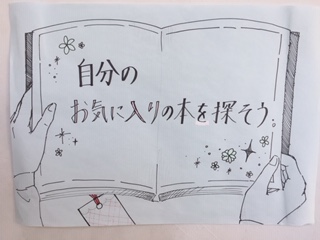 自分の
お気に入りの本を探そう。